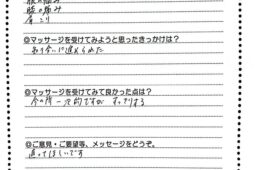 腰の痛み
膝の痛み
肩こり
◎マッサージを受けてみようと思ったきっかけは？
知り合いに進められた
◎マッサージを受けてみて良かった点は？
今の所一次的ですが すっきりする
◎ご意見・ご要望等、メッセージをどうぞ。
通ってほしいです